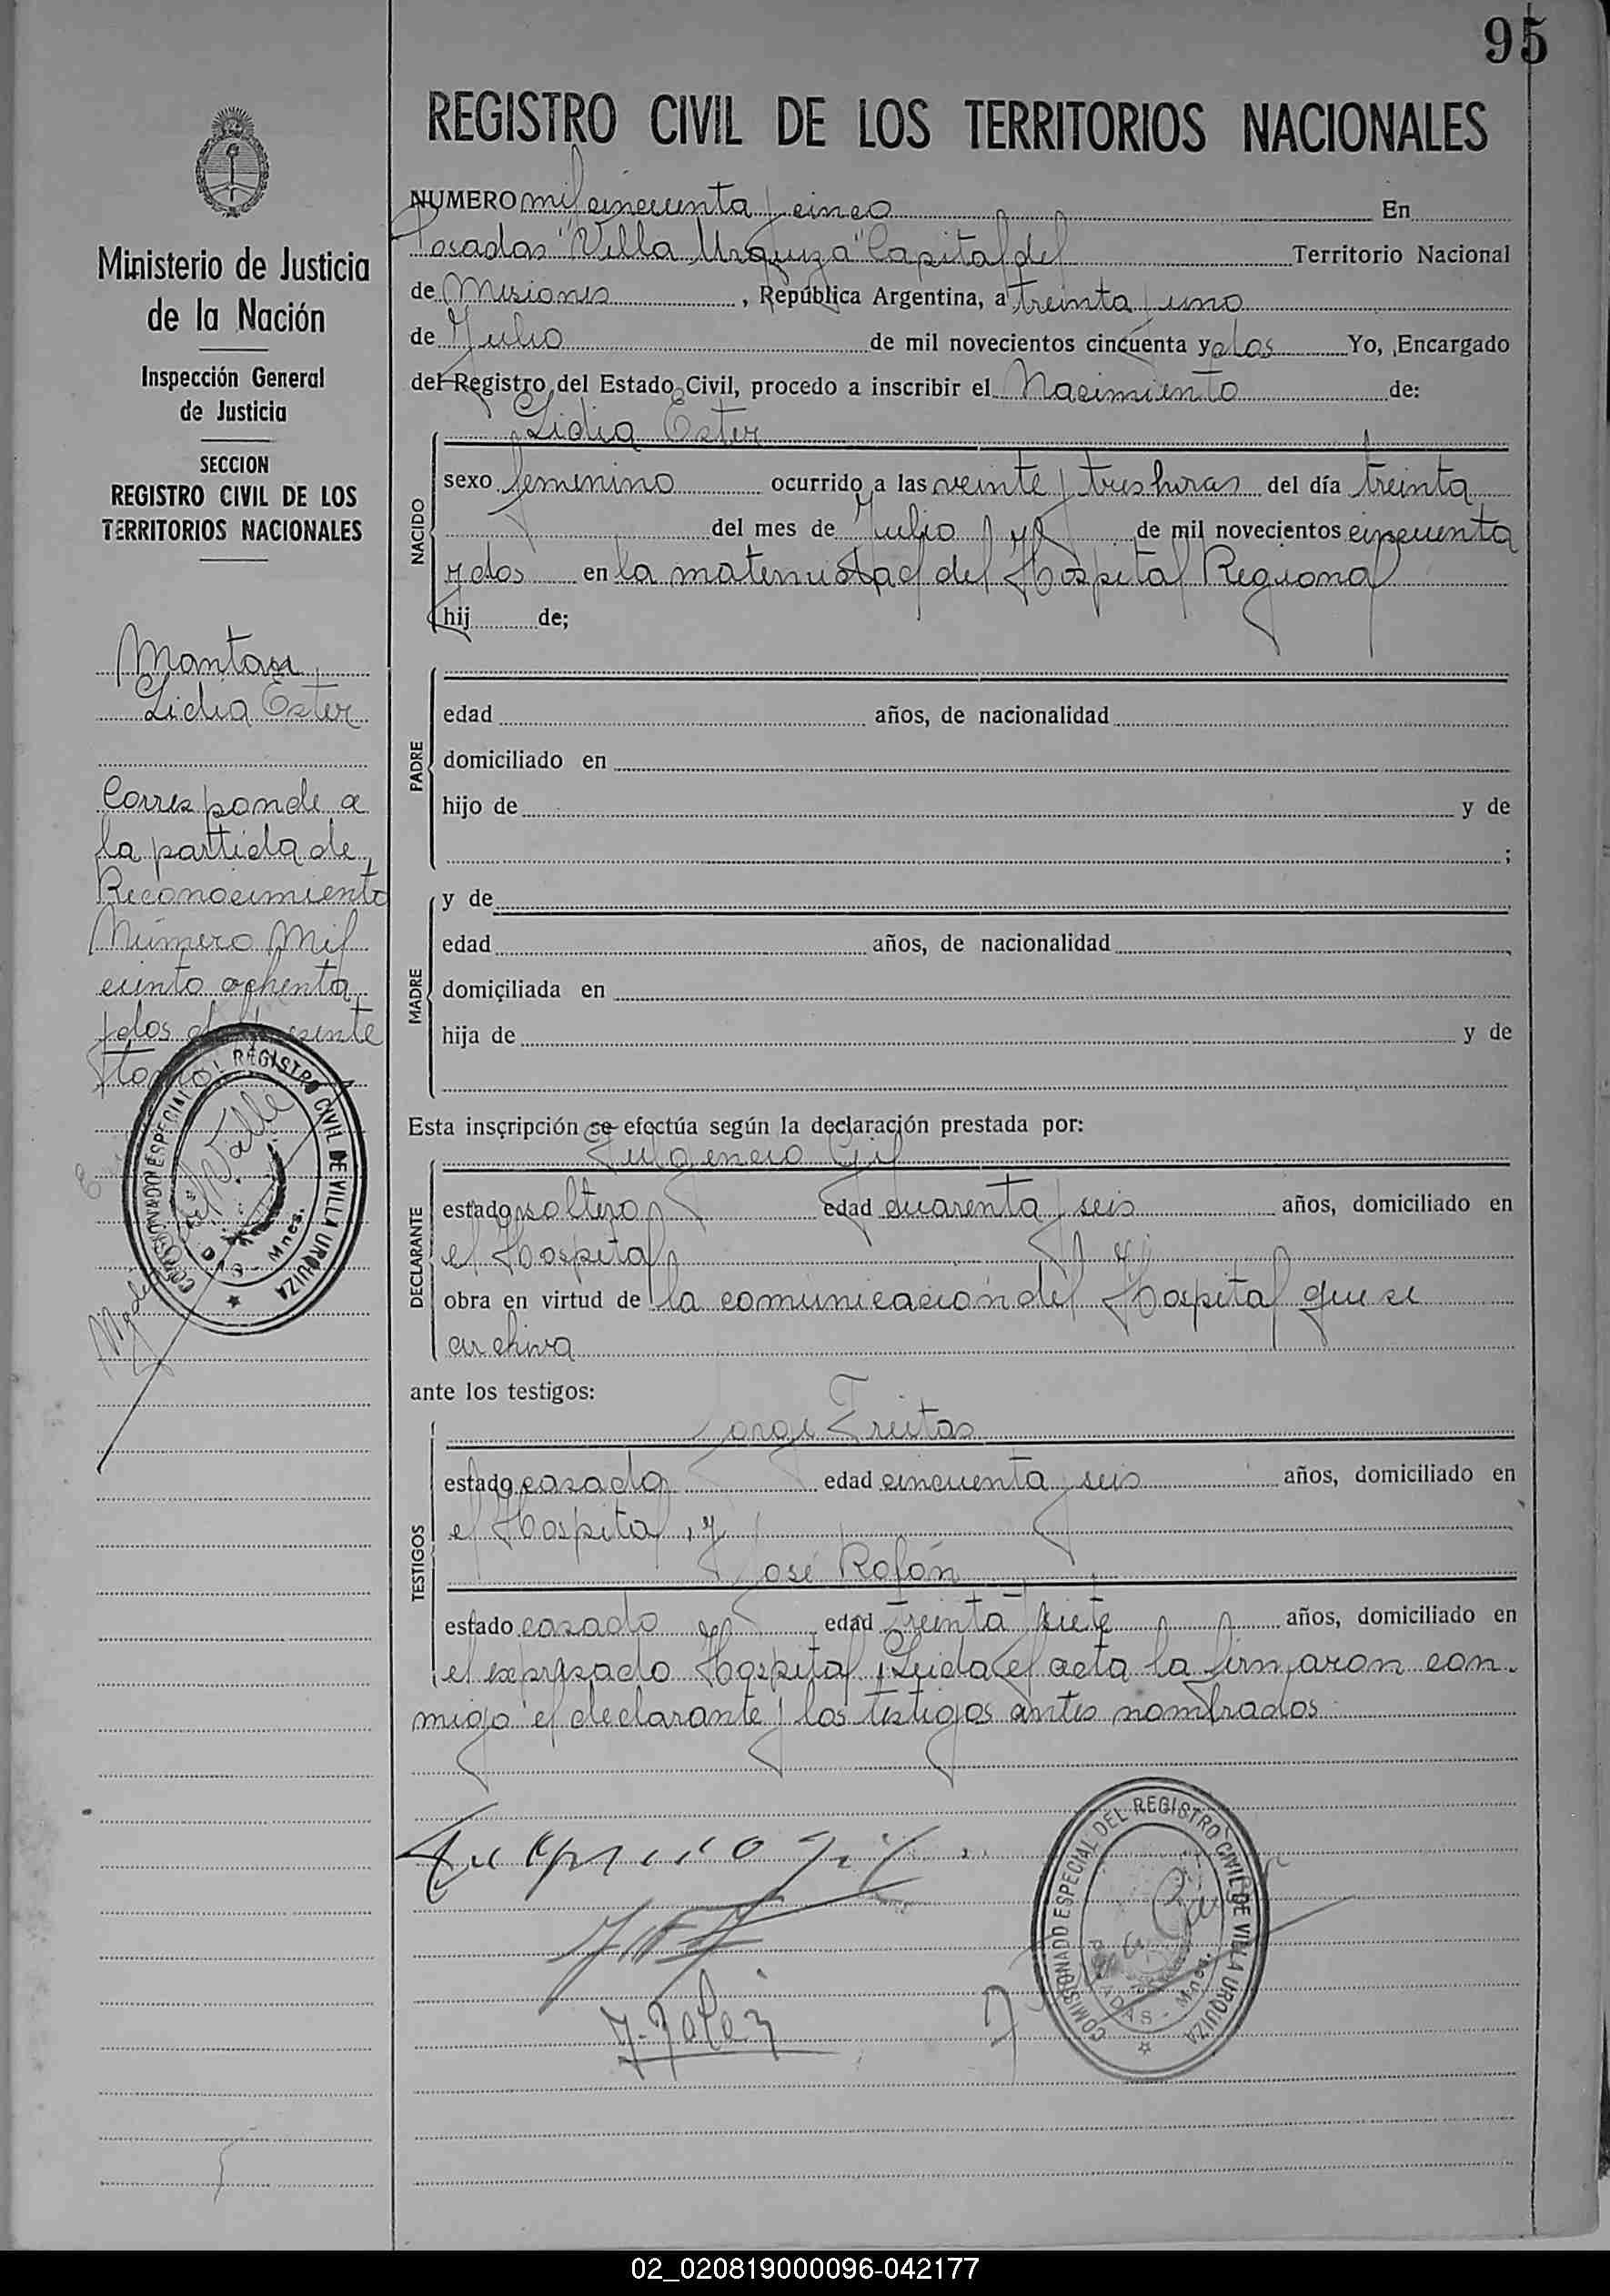 95
REGISTRO CIVIL DE LOS TERRITORIOS NACIONALES
NUMERO mil cincuenta y cinco En
Posadas "Villa Urquiza" Capital del Territorio Nacional
de Misiones, República Argentina, a treinta y uno
de Julio de mil novecientos cincuenta y dos Yo, Encargado
del Registro del Estado Civil, procedo a inscribir el Nacimiento de:
Lidia Ester
NACIDO
sexo femenino ocurrido a las veinte y tres horas del día treinta
del mes de Julio de mil novecientos cincuenta
y dos en la maternidad del Hospital Regional
hij de;
PADRE
edad años, de nacionalidad
domiciliado en
hijo de y de
;
MADRE
y de
edad años, de nacionalidad
domiciliada en
hija de y de
Esta inscripción se efectúa según la declaración prestada por:
Fulgencio Gil
DECLARANTE
estado soltero edad cuarenta y seis años, domiciliado en
el Hospital y
obra en virtud de la comunicación del Hospital que se
archiva
ante los testigos:
Jorge Freitas
TESTIGOS
estado casado edad cincuenta y seis años, domiciliado en
el Hospital, y
José Rolón
estado casado edad treinta y siete años, domiciliado en
el expresado Hospital, Leida el acta la firmaron con-
migo el declarante y los testigos antes nombrados.
COMISIONADO ESPECIAL DEL REGISTRO CIVIL DE VILLA URQUIZA
Ministerio de Justicia
de la Nación
Inspección General
de Justicia
SECCION
REGISTRO CIVIL DE LOS
TERRITORIOS NACIONALES
Lidia Ester
Corresponde a
la partida de
Reconocimiento
Número Mil
ciento ochenta
y dos del presente
tomo
COMISIONADO ESPECIAL REGISTRO CIVIL DE VILLA URQUIZA
02_020819000096-042177